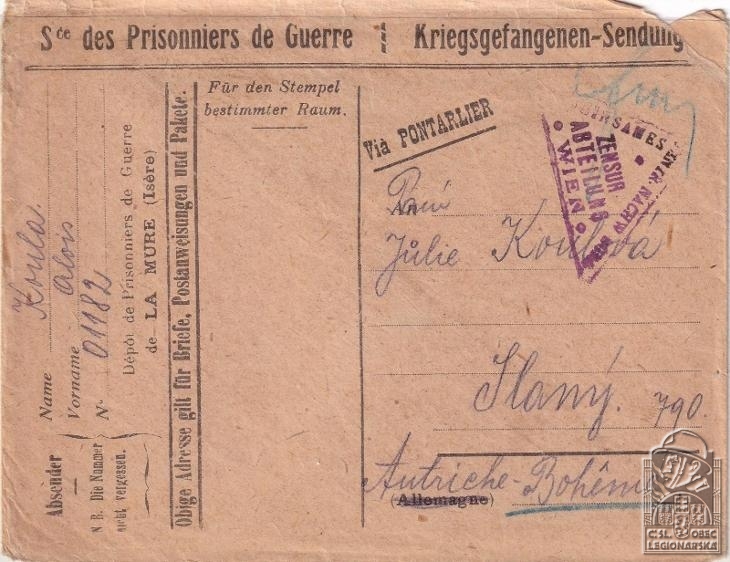 Sce des Prisonniers de Guerre Kriegsgefangenen-Sendung
Für den Stempel
bestimmter Raum.
Vià PONTARLIER
ZENSUR
ABTEILUNG
WIEN
Paní
An
Julie Koulová
Slaný. 790.
Autriche-Bohême
(Allemagne)
Absender
Name Koula
Vorname Alois
No 01182
N. B. Die Nummer
nicht vergessen.
Dépôt de Prisonniers de Guerre
de LA MURE (Isère)
Obige Adresse gilt für Briefe, Postanweisungen und Pakete.
ČSL. OBEC
LEGIONÁŘSKÁ